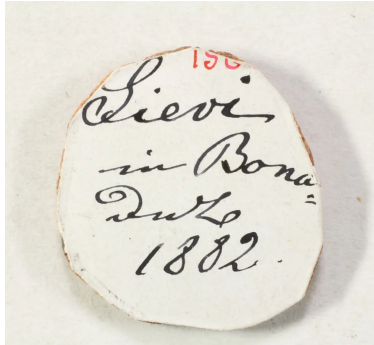 156
Sievi
in Bona=
duz
1882.